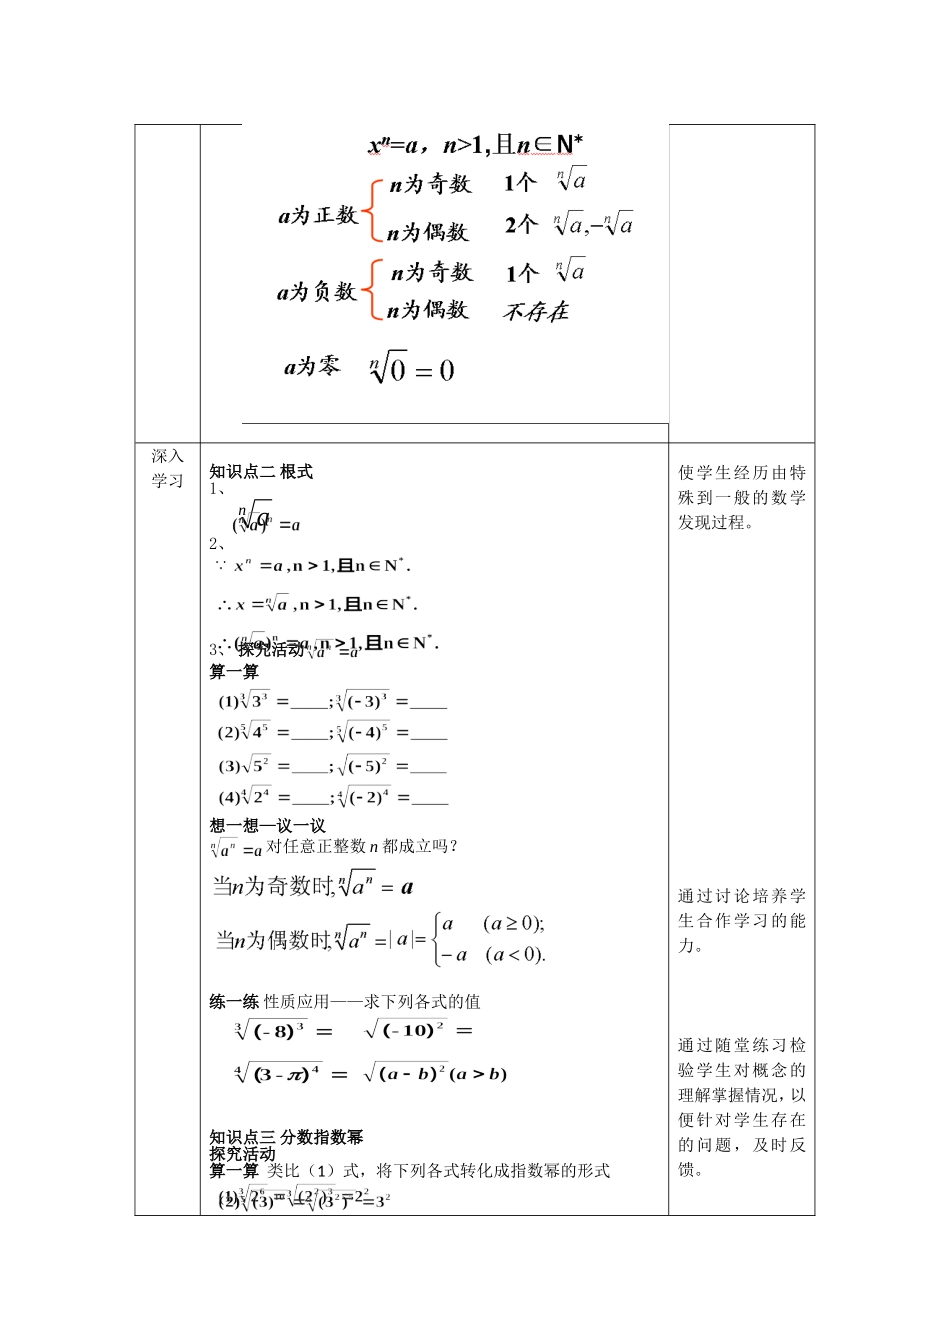 xⁿ=a，n>1,且n∈N*
a为正数 n为奇数 1个 ⁿ√a
n为偶数 2个 ⁿ√a,-ⁿ√a
a为负数 n为奇数 1个 ⁿ√a
n为偶数 不存在
a为零 ⁿ√0 = 0
深入
学习
知识点二 根式
1、
ⁿ√a
(ⁿ√a)ⁿ = a
2、
∵ xⁿ = a, n > 1, 且n∈N*.
∴ x = ⁿ√a, n > 1, 且n∈N*.
∴ (ⁿ√a)ⁿ = a, n > 1, 且n∈N*.
3、 探究活动 ⁿ√aⁿ = a
算一算
(1) ³√3³ = ____; ³√(-3)³ = ____
(2) ⁵√4⁵ = ____; ⁵√(-4)⁵ = ____
(3) √5² = ____; √(-5)² = ____
(4) ⁴√2⁴ = ____; ⁴√(-2)⁴ = ____
想一想—议一议
ⁿ√aⁿ = a 对任意正整数 n 都成立吗？
当n为奇数时, ⁿ√aⁿ = a
当n为偶数时, ⁿ√aⁿ = |a| = { a (a ≥ 0);
-a (a < 0).
练一练 性质应用——求下列各式的值
³√(-8)³ = √(-10)² =
⁴√(3-π)⁴ = √(a-b)² (a > b)
知识点三 分数指数幂
探究活动
算一算 类比（1）式，将下列各式转化成指数幂的形式
使学生经历由特
殊到一般的数学
发现过程。
通过讨论培养学
生合作学习的能
力。
通过随堂练习检
验学生对概念的
理解掌握情况，以
便针对学生存在
的问题，及时反
馈。